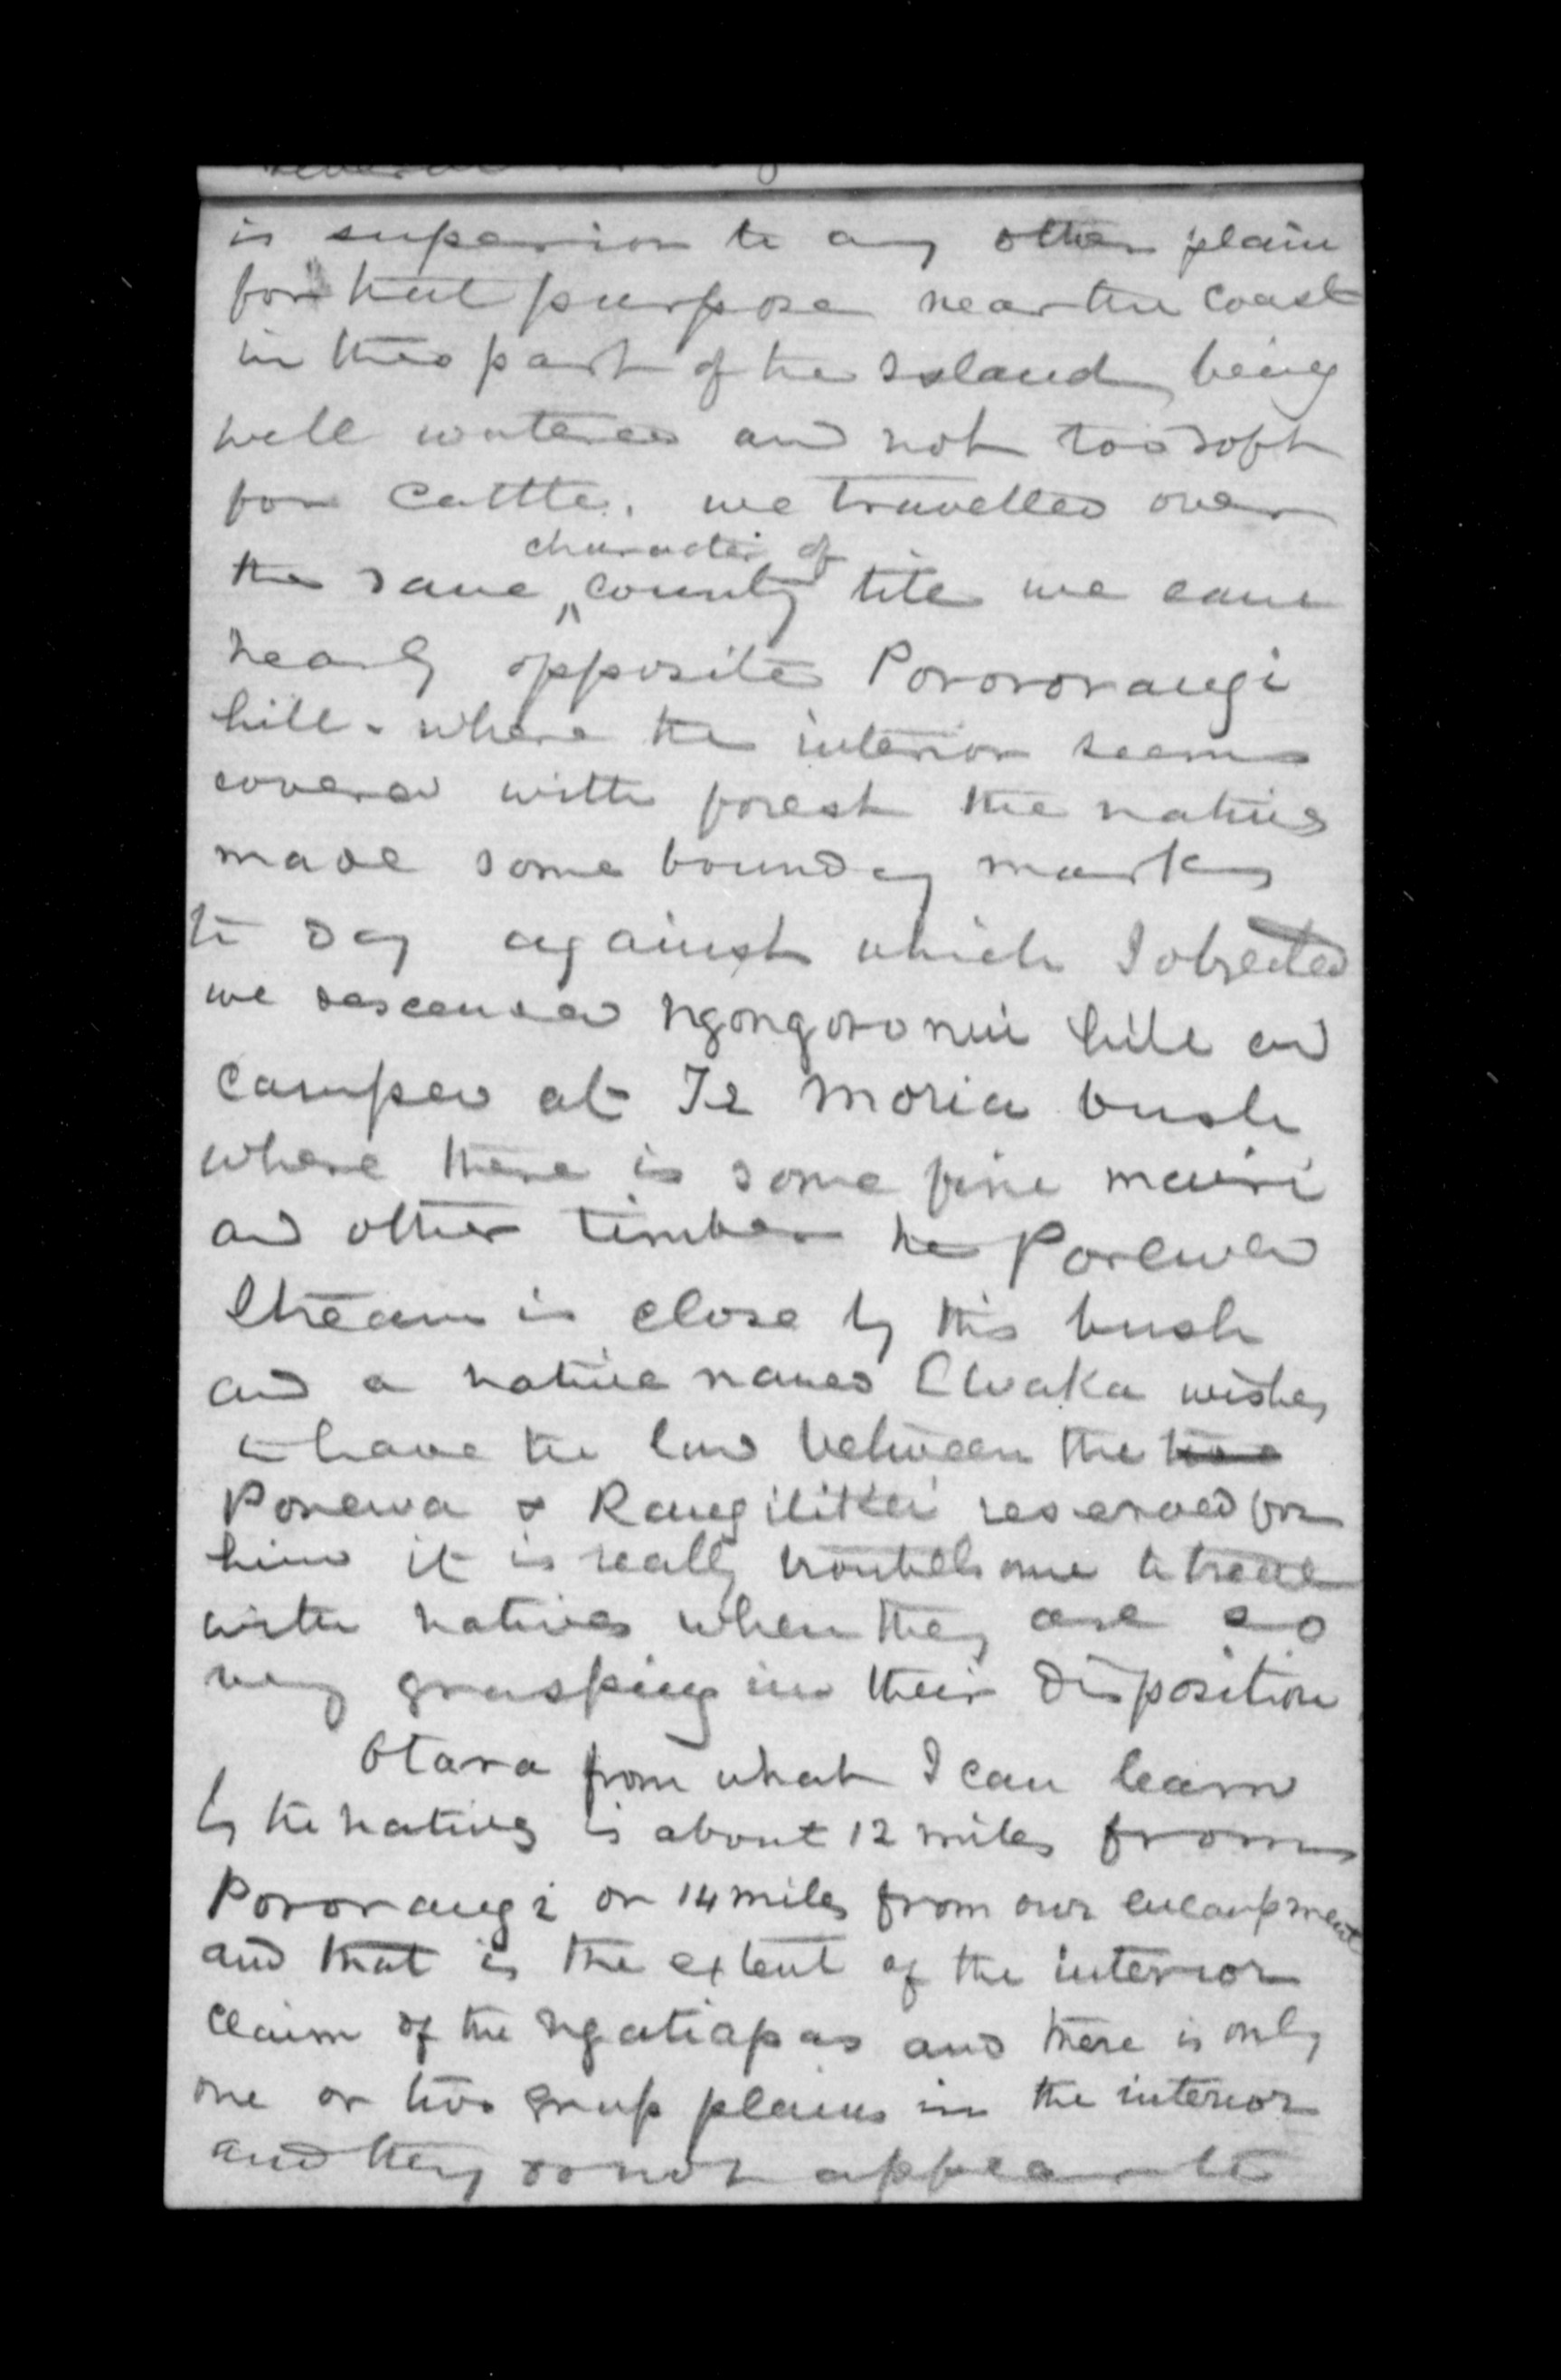 is superior to any other plain
for that purpose near the Coast
in this part of the Island, being
well watered and not too soft
for Cattle. we travelled over
character of
the same county till we came
nearly opposite Pororoangi
hill. where the interior seems
covered with forest the natives
made some boundy marks
to day against which I objected
we descended Ngongoronui hill and
camped at Te Moria bush
where there is some fine mairi
and other timber the Porewa
Stream is close by this bush
and a native named Ewaka wishes
to have the land between the two
Porewa & Rangitikei reserved for
him it is really troublesome to treat
with natives when they are so
very grasping in their disposition
Otara from what I can learn
by the natives is about 12 miles from
Pororangi or 14 miles from our encampment
and that is the extent of the interior
claim of the Ngatiapas and there is only
one or two plains in the interior
and they do not appear to